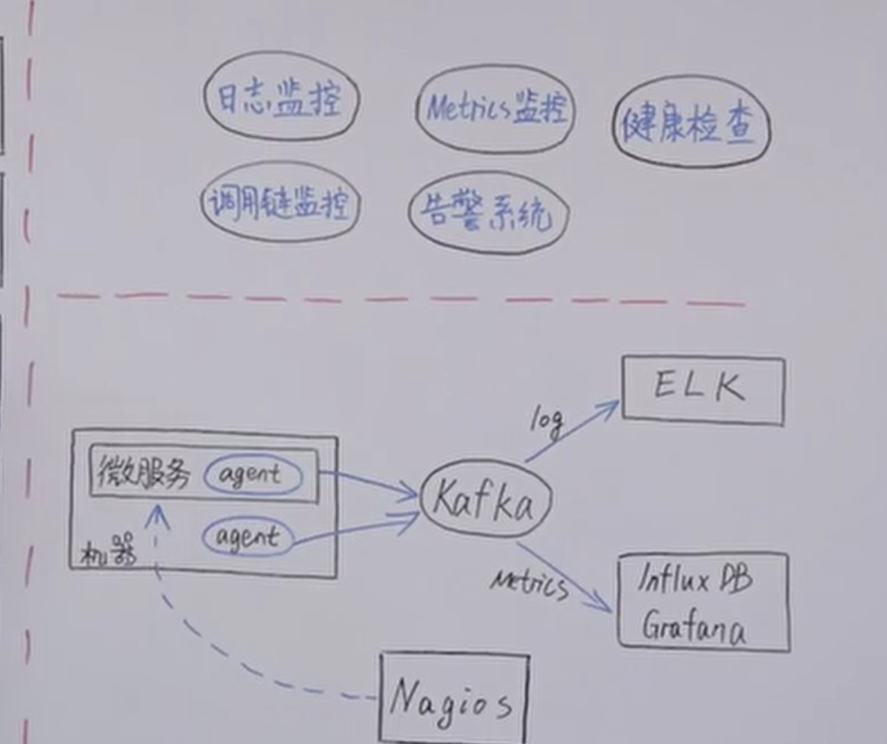 日志监控
Metrics监控
健康检查
调用链监控
告警系统
ELK
log
微服务 agent
Kafka
agent
机器
Metrics
Influx DB
Grafana
Nagios